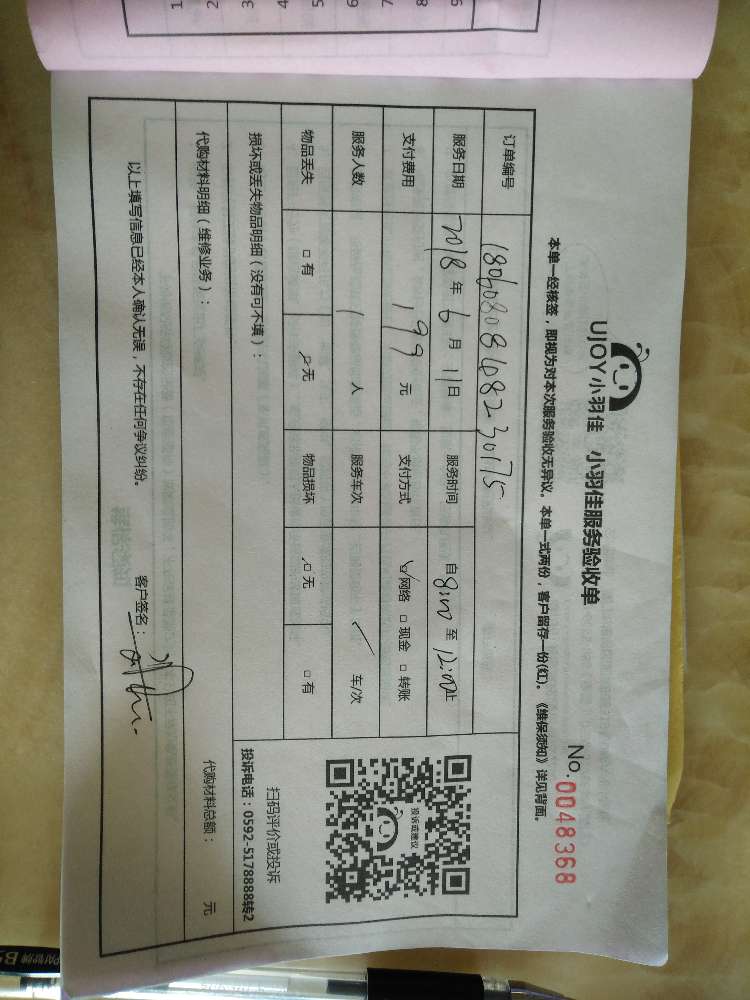 UJOY小羽佳 小羽佳服务验收单
No.0048368
本单一经核签，即视为对本次服务验收无异议。本单一式两份，客户留存一份(红)。《维保须知》详见背面。
订单编号 18060808408230775
服务日期 2018年6月11日 服务时间 自8:00至12:00止
支付费用 199元 支付方式 ☑网络 □现金 □转账
服务人数 1人 服务车次 / 车/次
物品丢失 □有 ☑无 物品损坏 ☑无 □有
损坏或丢失物品明细（没有可不填）：
投诉或建议
扫码评价或投诉
投诉电话：0592-5178888转2
代购材料明细（维修业务）： 代购材料总额： 元
以上填写信息已经本人确认无误，不存在任何争议纠纷。 客户签名：
1
2
3
4
5
6
7
8
9